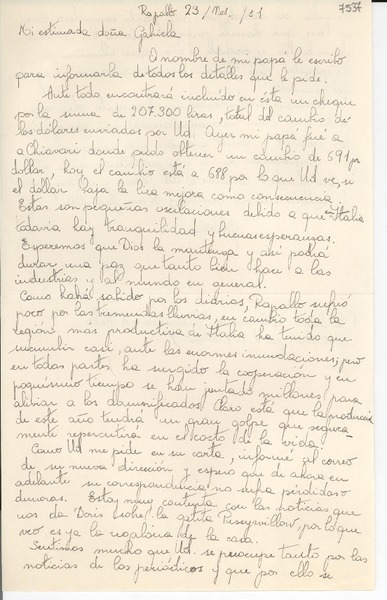 7537
Rapallo 23/Nov./51
Mi estimada doña Gabriela
A nombre de mi papá le escribo
para informarla de todos los detalles que le pide.
Ante todo encontrará incluido en ésta un cheque
por la suma de 207.300 liras, total del cambio de
los dólares enviados por Ud. Ayer mi papá fué a
a Chiavari donde pudo obtener un cambio de 691 por
dollar, hoy el cambio está a 688 por lo que Ud ve, si
el dollar baja la lira mejora como consecuencia
Estas son pequeñas oscilaciones debido a que en Italia
todavia hay tranquilidad y buenas esperanzas.
Esperemos que Dios la mantenga y así podrá
durar una paz que tanto bien hace a las
industrias y al mundo en general.
Como habrá sabido por los diarios, Rapallo sufrió
poco por las tremendas lluvias, en cambio toda la
región más productiva de Italia ha tenido que
sucumbir casi, ante las enormes inundaciones; pero
en todas partes ha surgido la cooperación y en
poquísimo tiempo se han juntado millones para
aliviar a los damnificados. Claro está que la producción
de este año tendrá un gran golpe que segura-
mente repercutirá en el costo de la vida.
Como Ud me pide en su carta, informé al correo
de su nueva dirección y espero que de ahora en
adelante su correspondencia no sufra pérdidas o
demoras. Estoy muy contenta con las noticias que
nos da Doris sobre la gatita Pussywillow, por lo que
veo es ya la regalona de la casa.
Sentimos mucho que Ud. se preocupe tanto por las
noticias de los periódicos y que por ello se